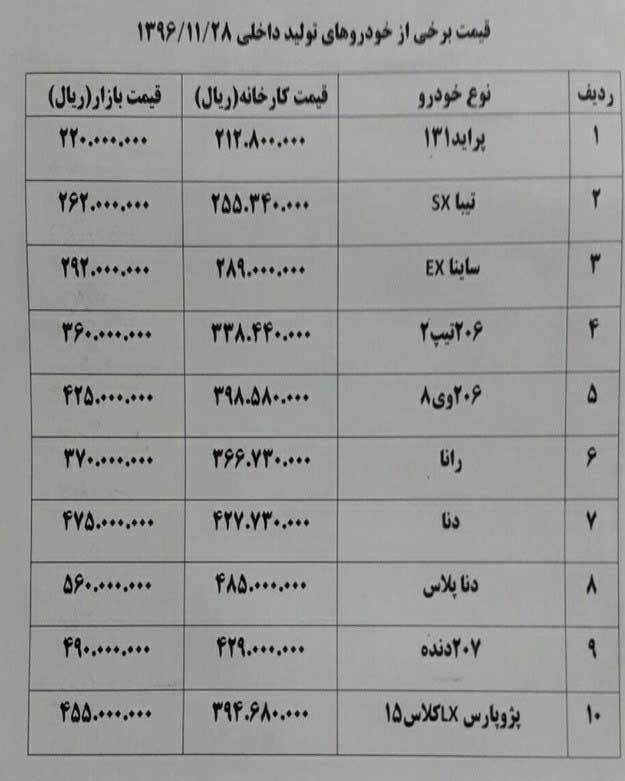 قیمت برخی از خودروهای تولید داخلی ۱۳۹۶/۱۱/۲۸
ردیف نوع خودرو قیمت کارخانه(ریال) قیمت بازار(ریال)
۱ پراید۱۳۱ ۲۱۲.۸۰۰.۰۰۰ ۲۲۰.۰۰۰.۰۰۰
۲ تیبا SX ۲۵۵.۳۴۰.۰۰۰ ۲۶۲.۰۰۰.۰۰۰
۳ ساینا EX ۲۸۹.۰۰۰.۰۰۰ ۲۹۲.۰۰۰.۰۰۰
۴ ۲۰۶تیپ۲ ۳۳۸.۴۴۰.۰۰۰ ۳۶۰.۰۰۰.۰۰۰
۵ ۲۰۶وی۸ ۳۹۸.۵۸۰.۰۰۰ ۴۲۵.۰۰۰.۰۰۰
۶ رانا ۳۶۶.۷۳۰.۰۰۰ ۳۷۰.۰۰۰.۰۰۰
۷ دنا ۴۲۷.۷۳۰.۰۰۰ ۴۷۵.۰۰۰.۰۰۰
۸ دنا پلاس ۴۸۵.۰۰۰.۰۰۰ ۵۶۰.۰۰۰.۰۰۰
۹ ۲۰۷دنده ۴۲۹.۰۰۰.۰۰۰ ۴۹۰.۰۰۰.۰۰۰
۱۰ پژوپارس LXکلاس۱۵ ۳۹۴.۶۸۰.۰۰۰ ۴۵۵.۰۰۰.۰۰۰